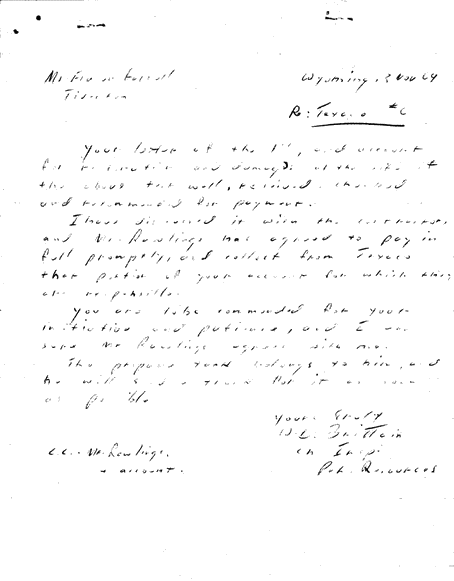 Wyoming, 3 Nov 69
Re: Texaco #6
Your letter of the 1st, and account
for reclamation and damage at the site of
the above test well, received, checked
and recommended for payment.
I have discussed it with the contractors
and Mr Rawlings has agreed to pay in
full promptly, and collect from Texaco
that portion of your account for which they
are responsible.
You are to be commended for your
initiative and patience, and I am
sure Mr Rawlings agrees with me.
The propane tank belongs to him, and
he will send a truck for it as soon
as possible
Yours truly
W.L. Brittain
Ch Insp.
Pet. Resources
c.c. - Mr. Rawlings.
+ account.